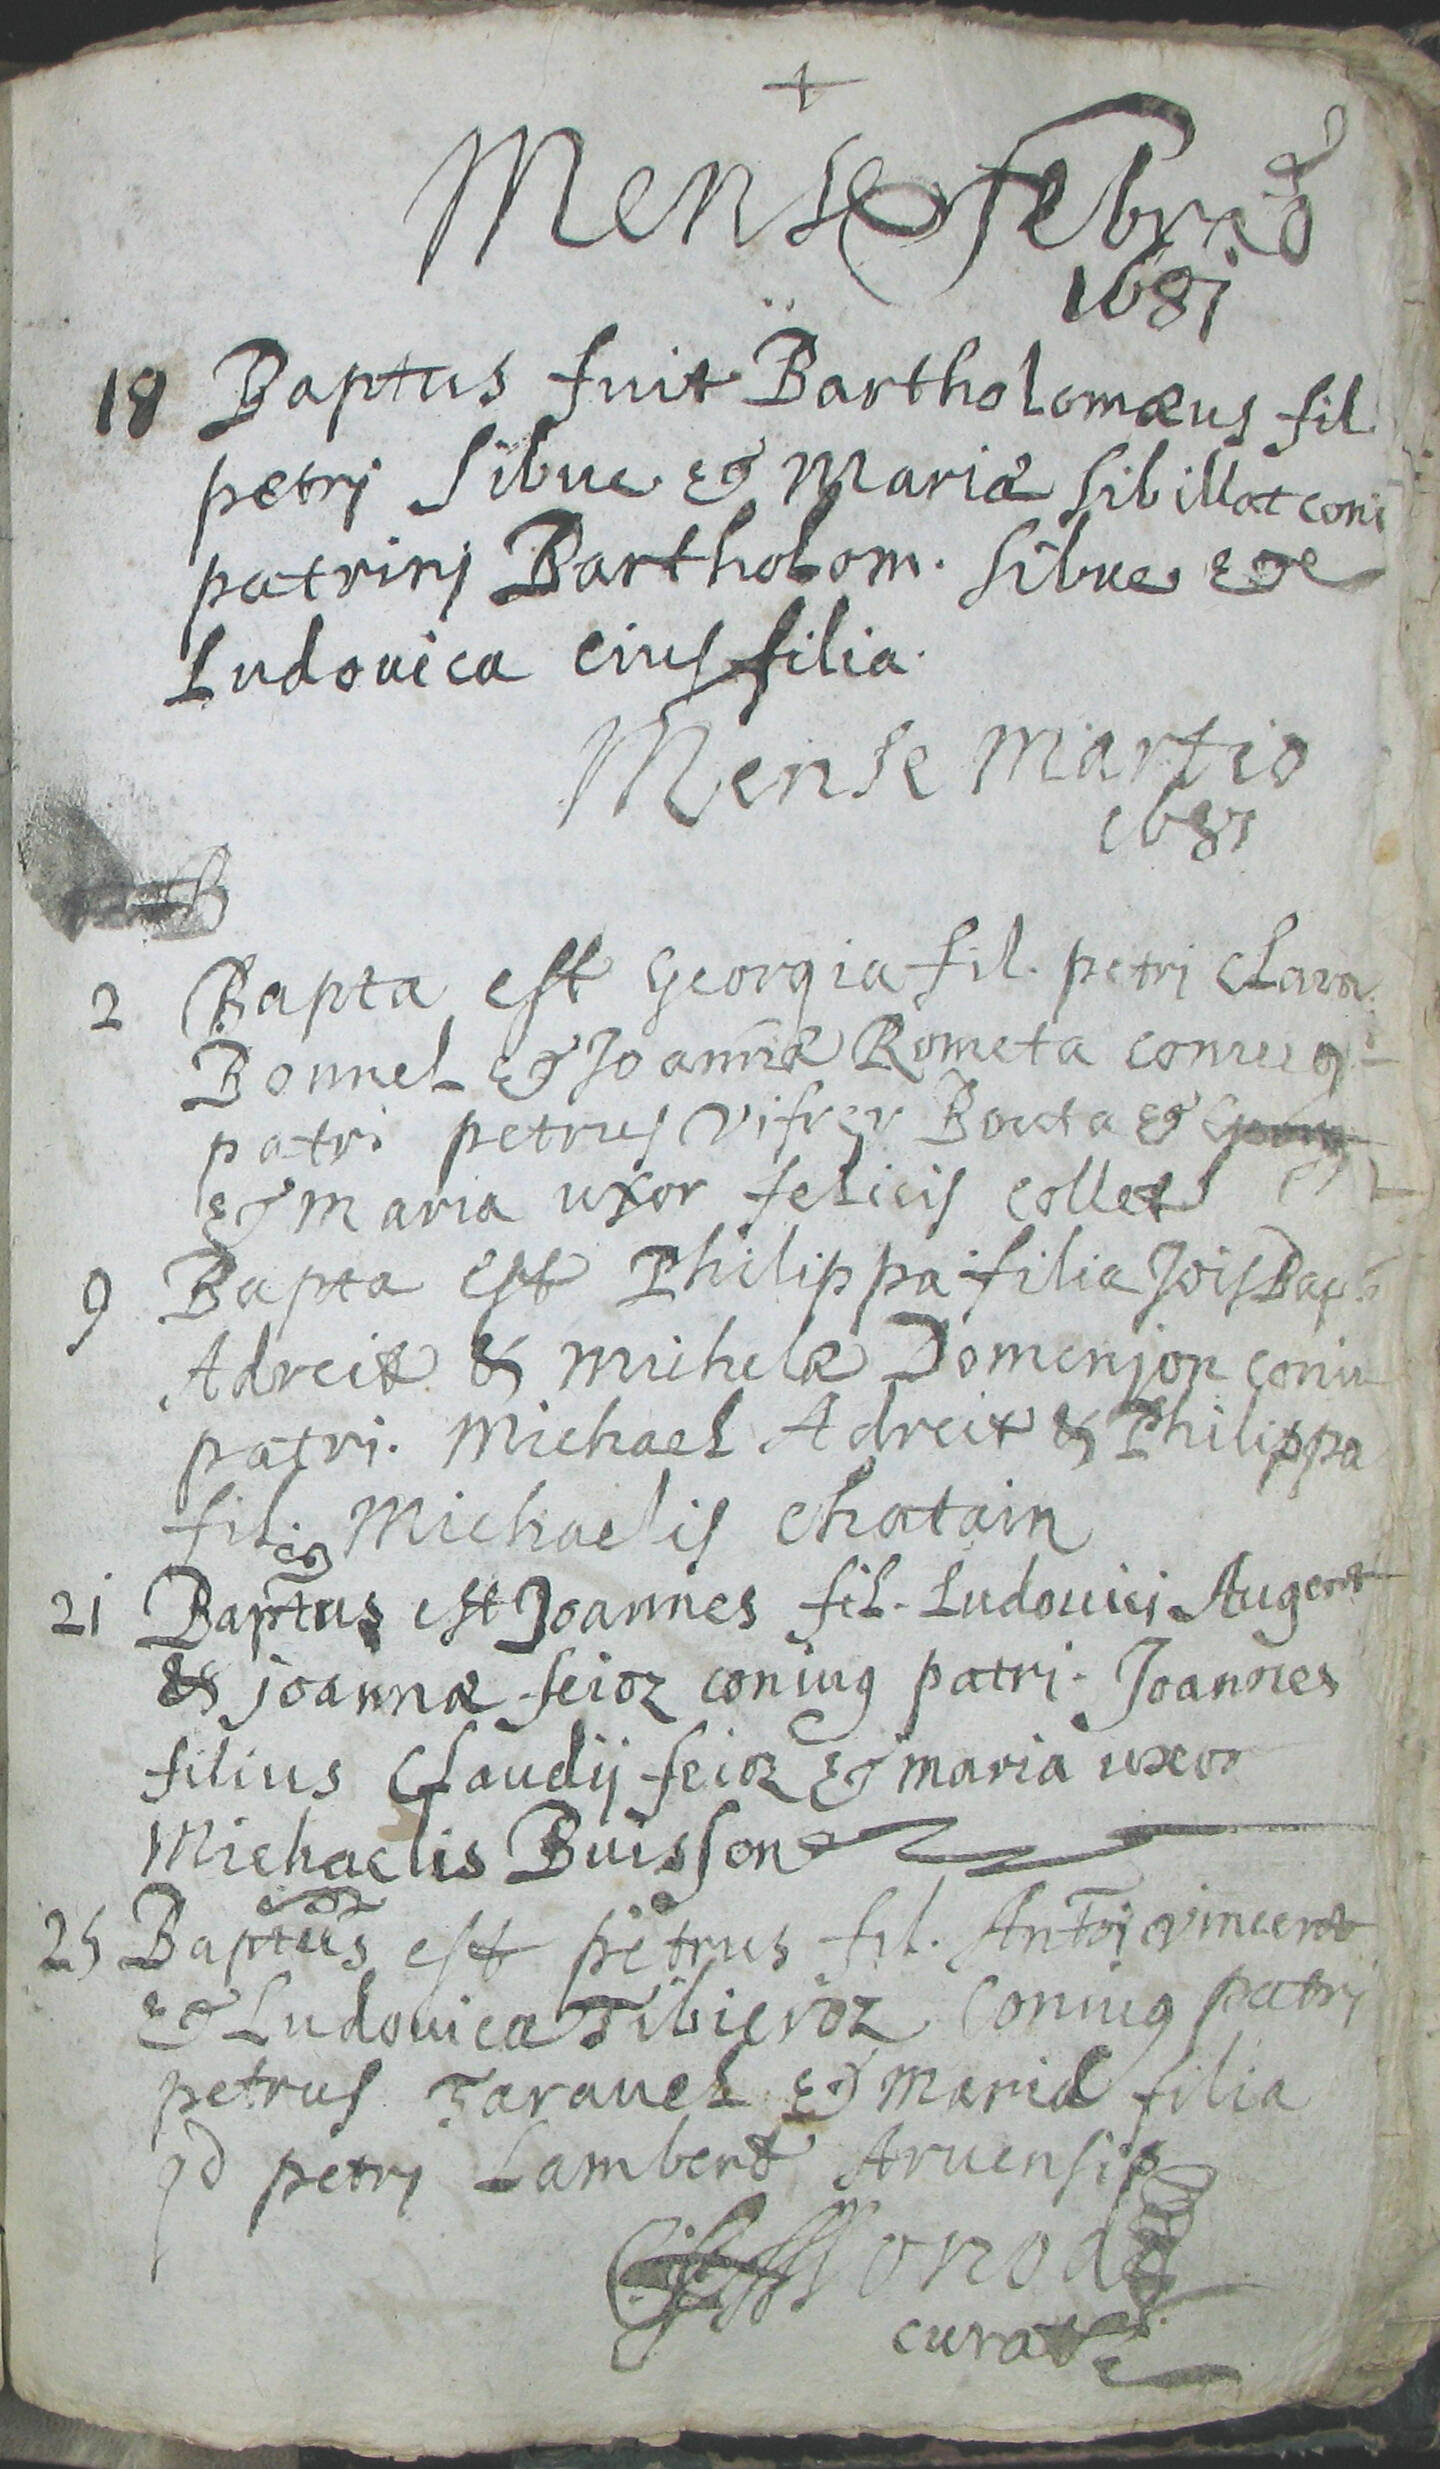 +
Mense febrio
1681
18 Baptus fuit Bartholomæus fil
petrj Sibue & Mariæ Sibillat coni
patrinj Bartholom. Sibue &
Ludouica eius filia.
Mense martio
1681
B
2 Bapta est Georgia fil. petrj Clara
Bonnel & Joannæ Rometa coniug
patri petrus Bouta &
& maria uxor felicis collet
9 Bapta est Philippa filia Jois Bap
Adreit & michelæ Domenjon coniu
patri. Michael Adreit & Philippa
fil. Michaelis Chatain
21 Baptus est Joannes fil. Ludouici Augert
& joannæ feioz coniug patri. Joannes
filius Claudij feioz & maria uxor
Michaelis Buisson
25 Baptus est petrus fil. Antoj vincent
& Ludouica Tibieroz coniug patrj
petrus Tarauel & Maria filia
qd petrj Lambert Aruensis
curat